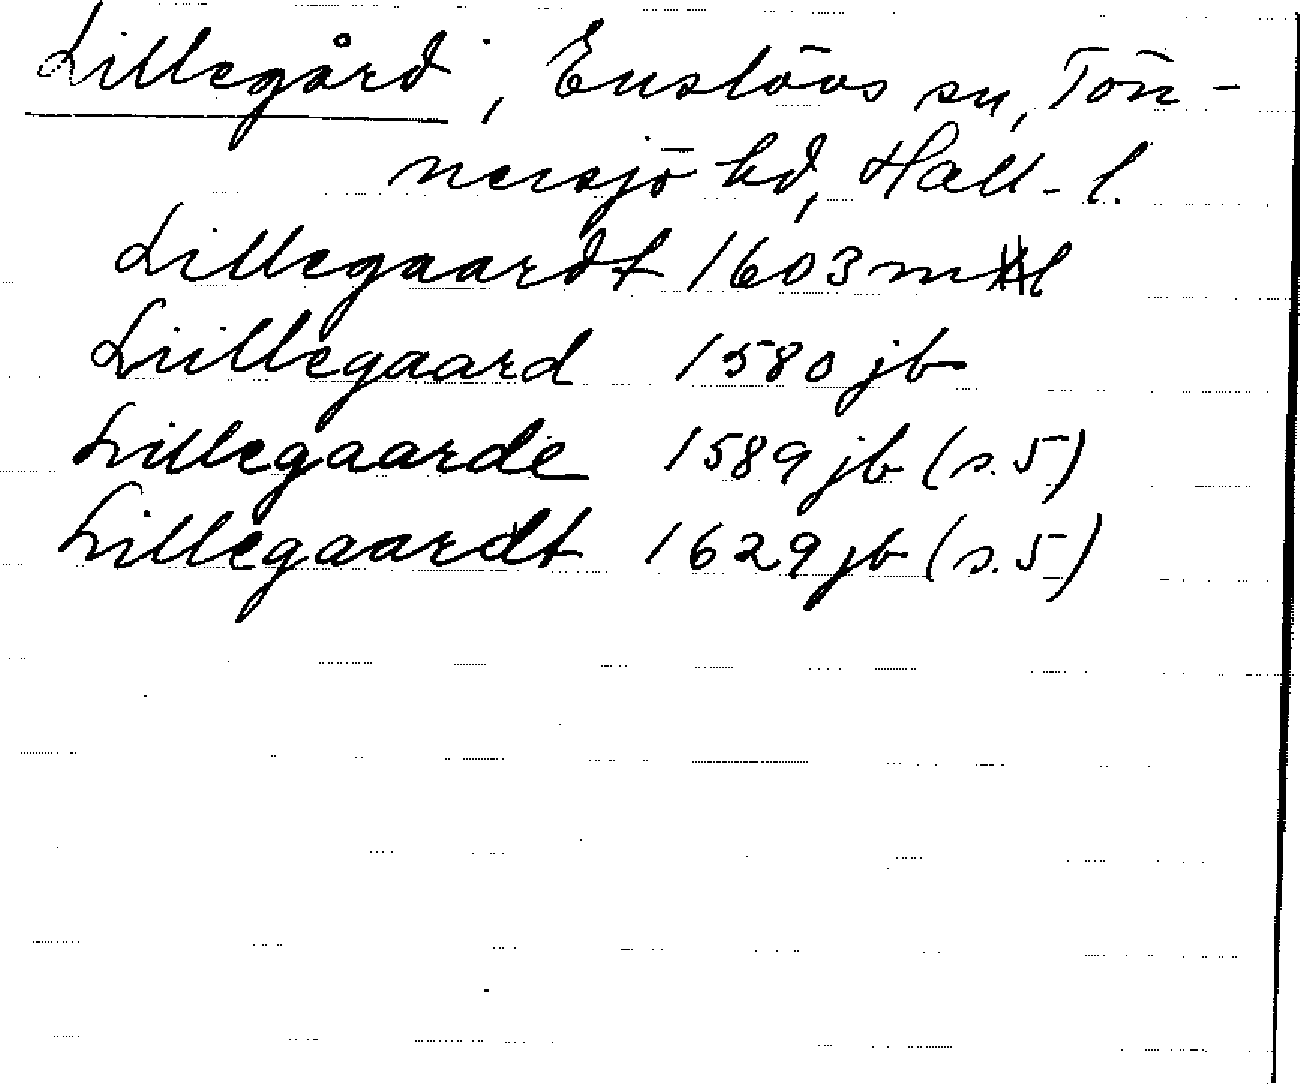 Lillegård, Enslövs sn, Tön-
nersjö hd, Hall. l.
Lillegaardt 1603 mtl
Liillegaard 1580 jb
Lillegaarde 1589 jb (s. 5)
Lillegaardt 1629 jb (s. 5)